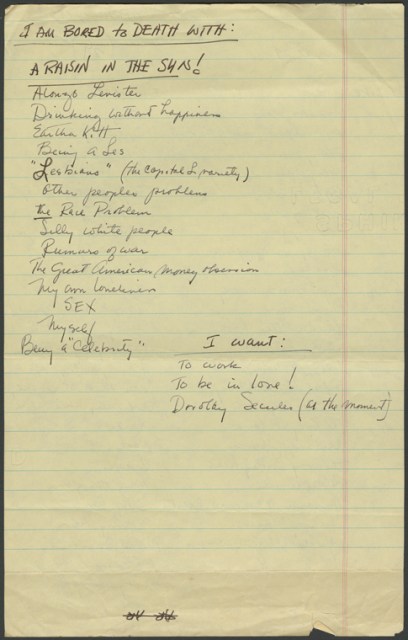 I AM BORED to DEATH WITH:
A RAISIN IN THE SUN!
Alonzo Levister
Drinking without happiness
Eartha Kitt
Being a Les
"Lesbians" (the capital L variety)
Other peoples problems
the Race Problem
Silly white people
Rumors of war
The Great American money obsession
My own loneliness
SEX
Myself
Being a "Celebrity"
I want:
To work
To be in love!
Dorothy Secules (at the moment)